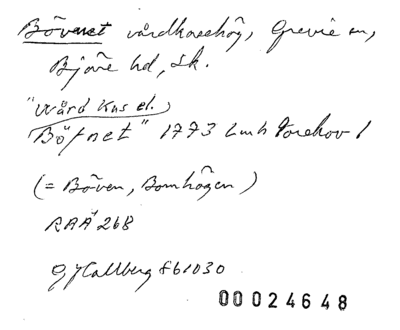 Bövnet vårdkasehög, Grevie sn,
Bjäre hd, Sk.
"Wård Kas el.
Böfnet" 1773 Lmh Torekov 1
(= Böven, Bomhögen)
RAÄ 268
G Hallberg 861030
00024648